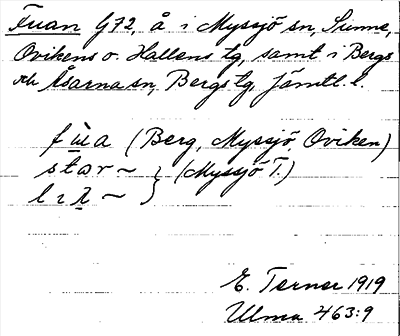 Fuan G72, å i Myssjö sn, Sunne,
Ovikens o. Hallens tg, samt i Bergs
och Åsarna sn, Bergs tg Jämtl. l.
fùa (Berg, Myssjö, Oviken)
star ~ } (Myssjö T.)
~ }
E. Terner 1919
Ulma 463:9